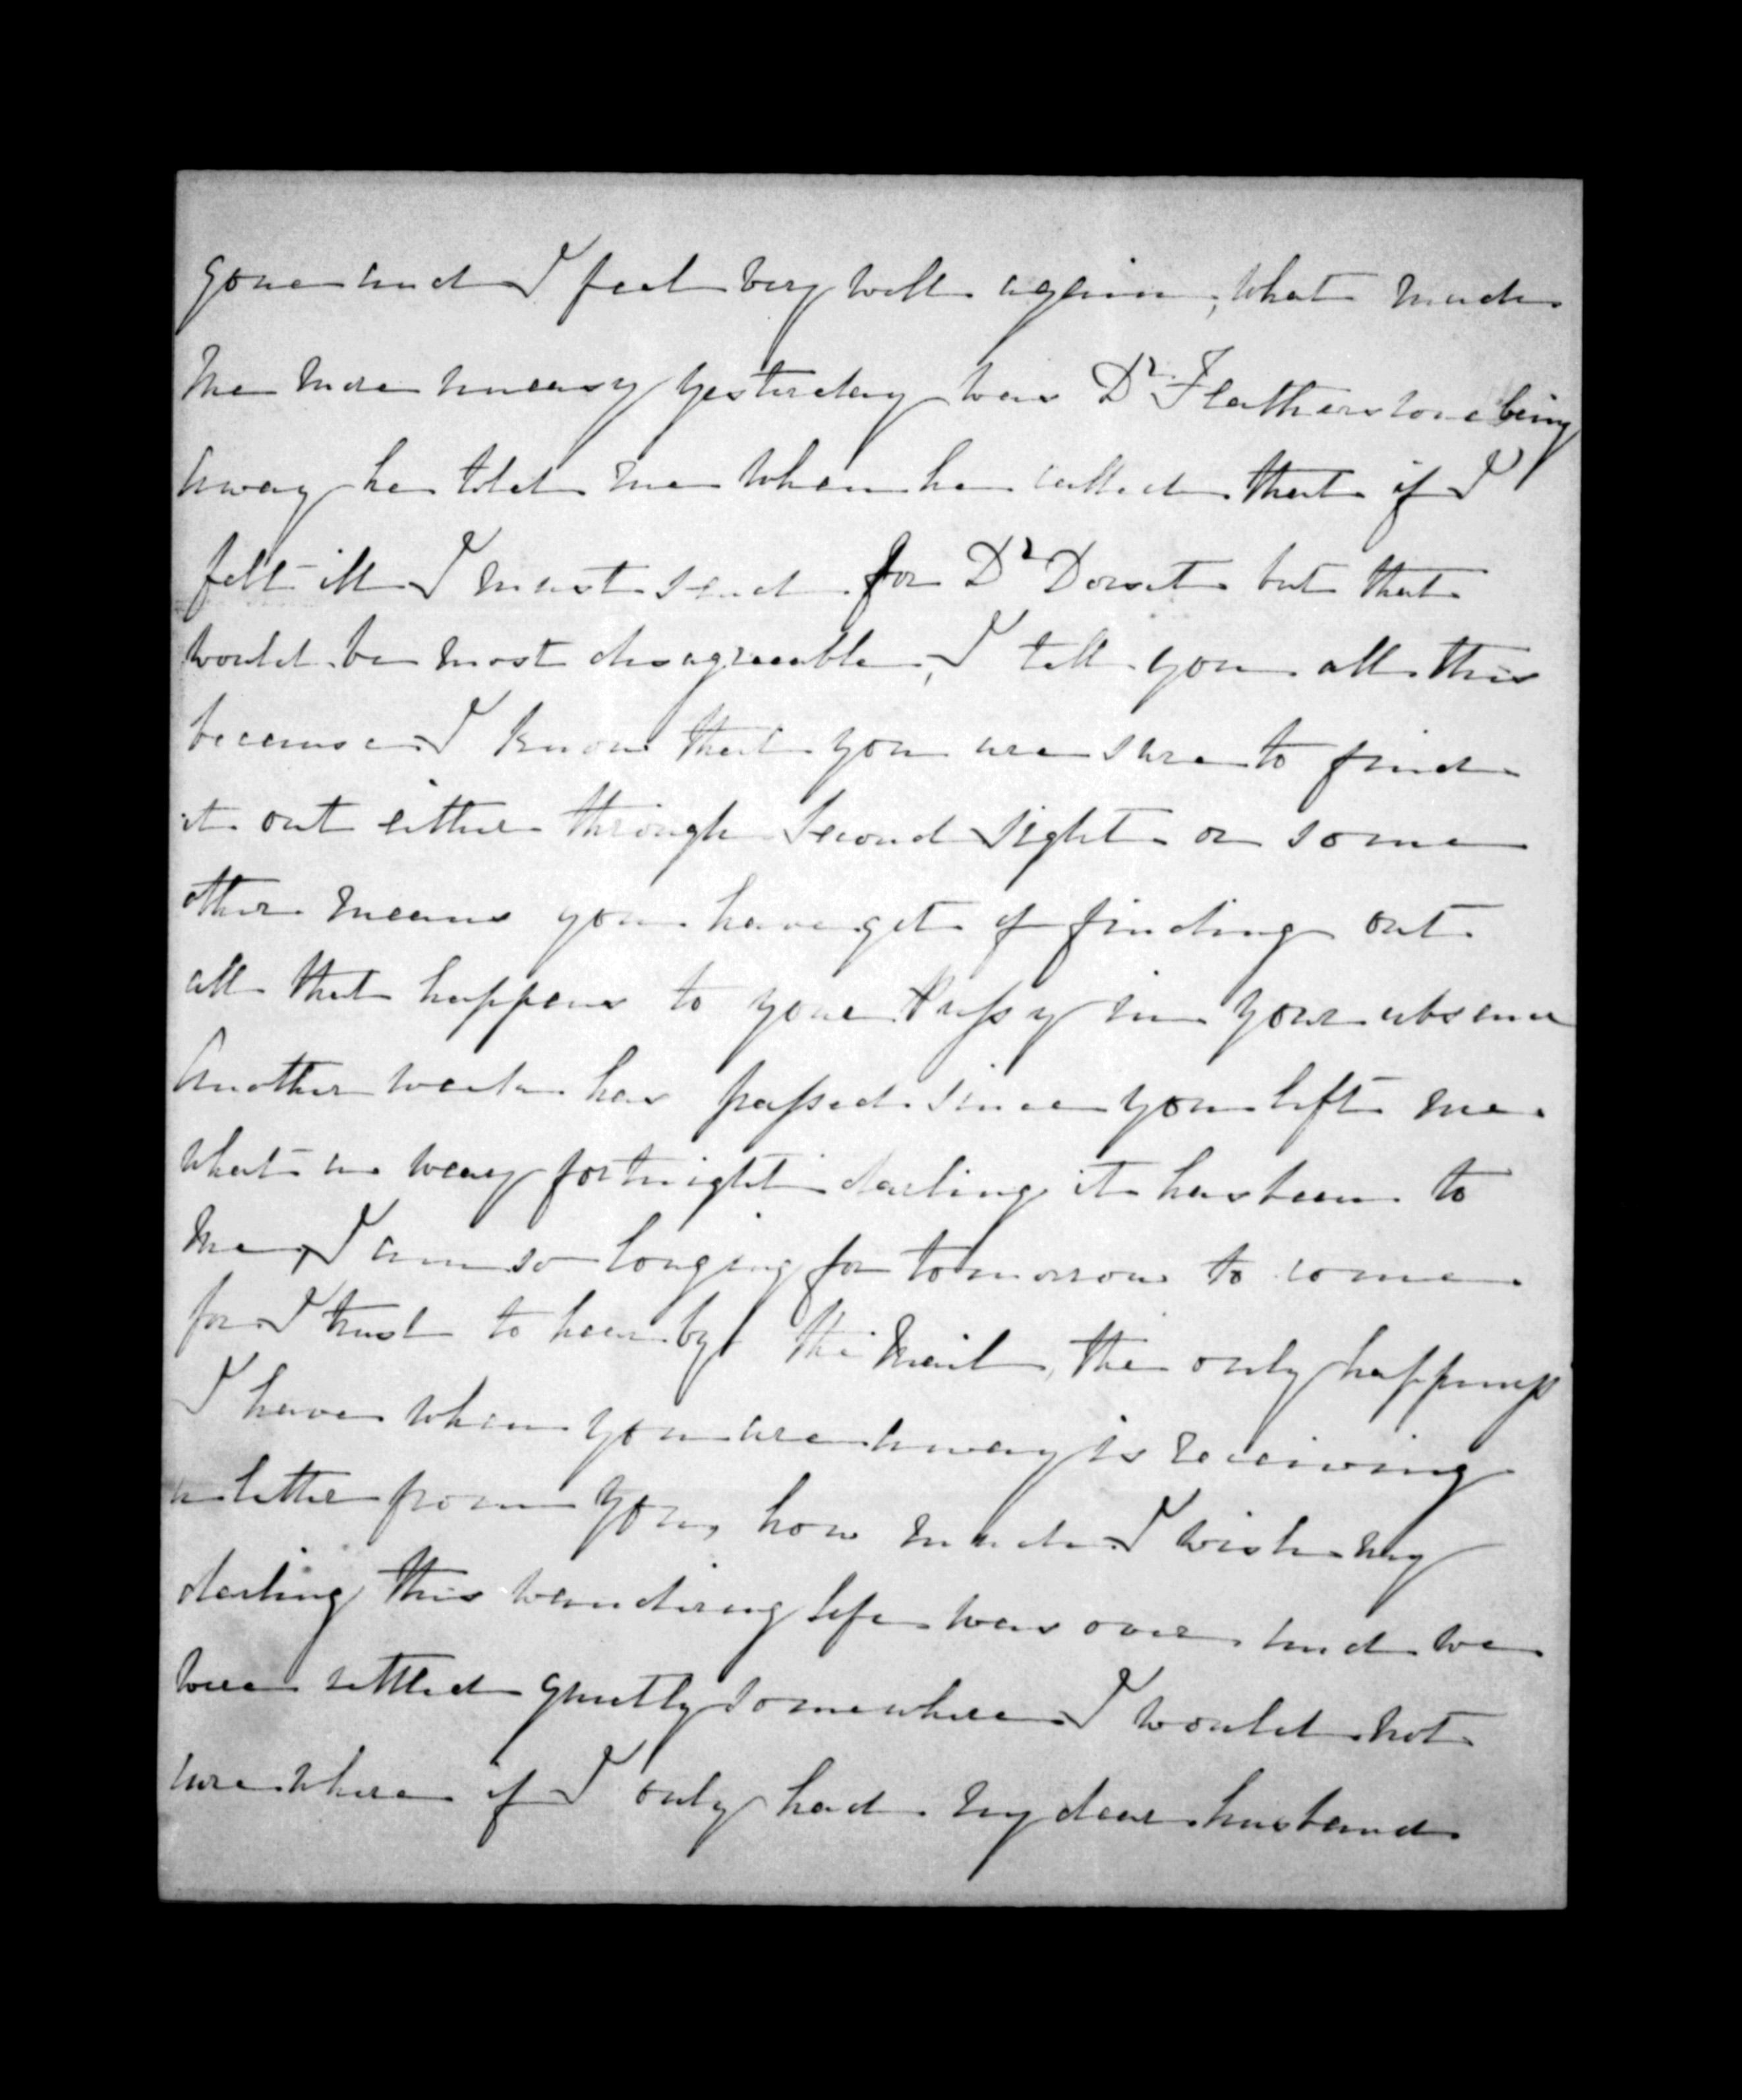 gone and I feel very well again, what made
me more uneasy yesterday was Dr Featherstone being
away he told me when he called that if I
felt ill I must send for Dr Dorset but that
would be most disagreeable, I tell you all this
because I know that you are sure to find
it out either through Second Sight or some
other means you have get of finding out
all that happens to your Pussy in your absence
Another week has passed since you left me.
what a weary fortnight darling it has been to
me, I am so longing for tomorrow to come
for I trust to hear by the Mail, the only happiness
I have when you are away is receiving
a letter from you, how much I wish my
darling this wandering life was over and we
were settled quietly somewhere I would not
care where if I only had my dear husband